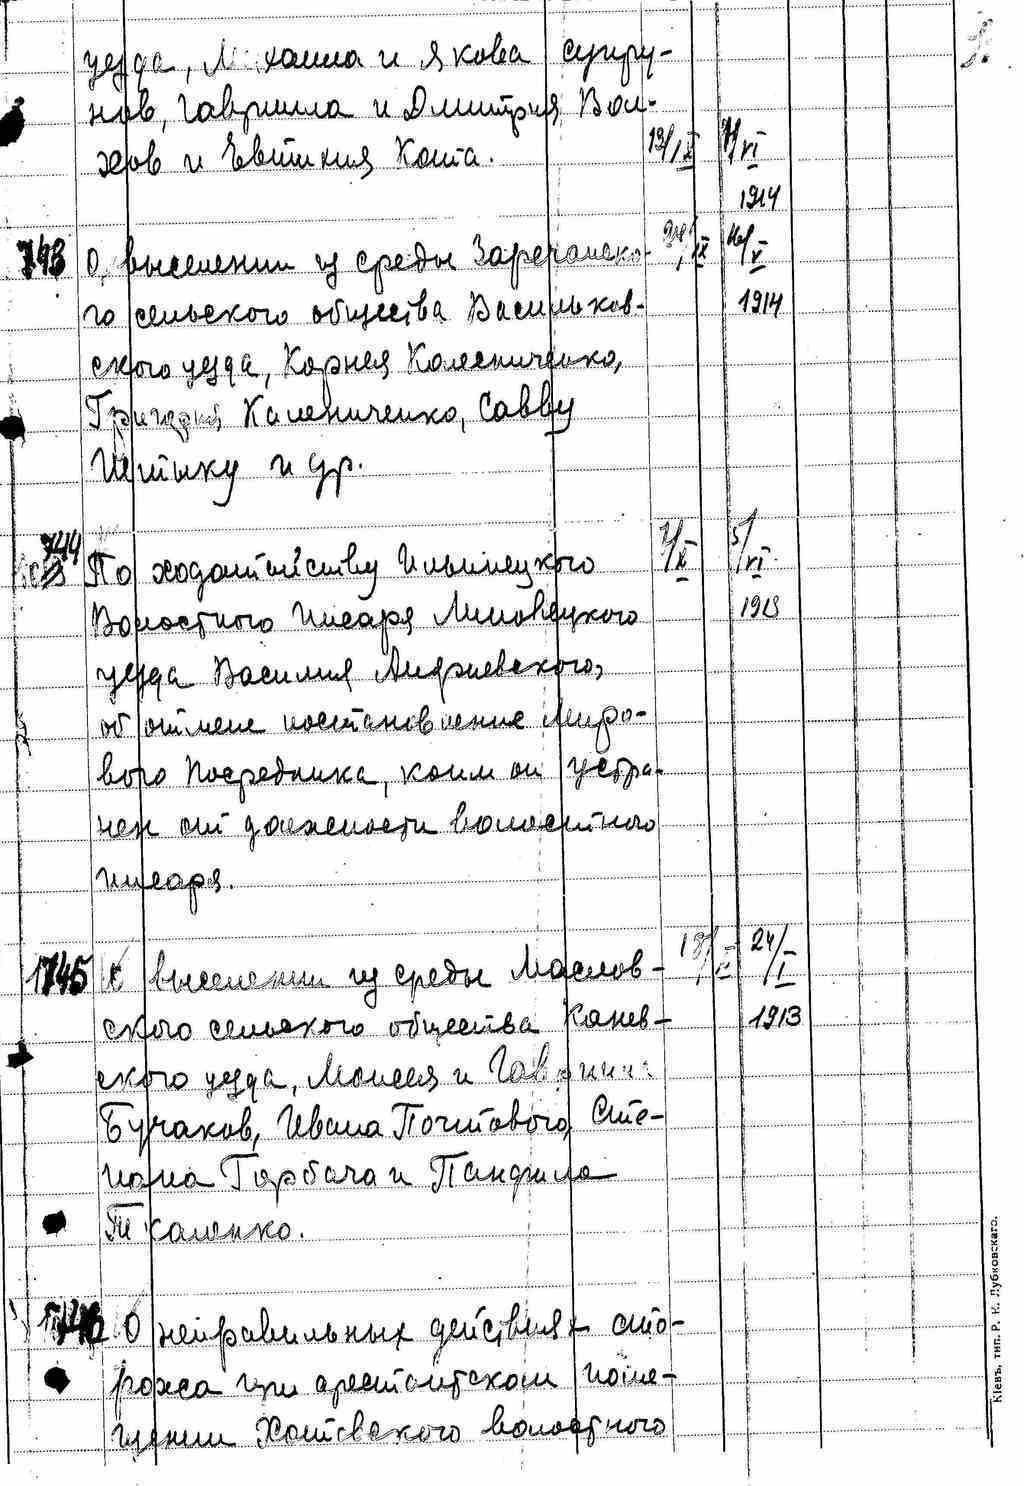 уезда, Михаила и Якова Супру-
нов, Гавриила и Дмитрия Вол-
хов и Евтихия Кота. 13/IX 11/VI
1914
743 О выселении из среды Заречанско- IX V
го сельского общества Васильков- 1914
ского уезда, Корнея Колесниченко,
Григория Калениченко, Савву
Шпыку и др.
744 По ходатайству Ильинецкого XI 5/VI
Волостного Писаря Липовецкого 1913
уезда Василия Андриевского,
об отмене постановление Миро-
вого Посредника, коим он устра-
нен от должности волостного
писаря.
1745 О выселении из среды Маслов- 24/I
ского сельского общества Канев- 1913
ского уезда, Моисея и Гавриила
Бучаков, Ивана Почтового, Сте-
пана Горбача и Панфила
Ткаленко.
1746 О неправильных действиях сто-
рожа при арестантском поме-
щении Хотовского волостного
Кіевъ, тип. Р. К. Лубковскаго.